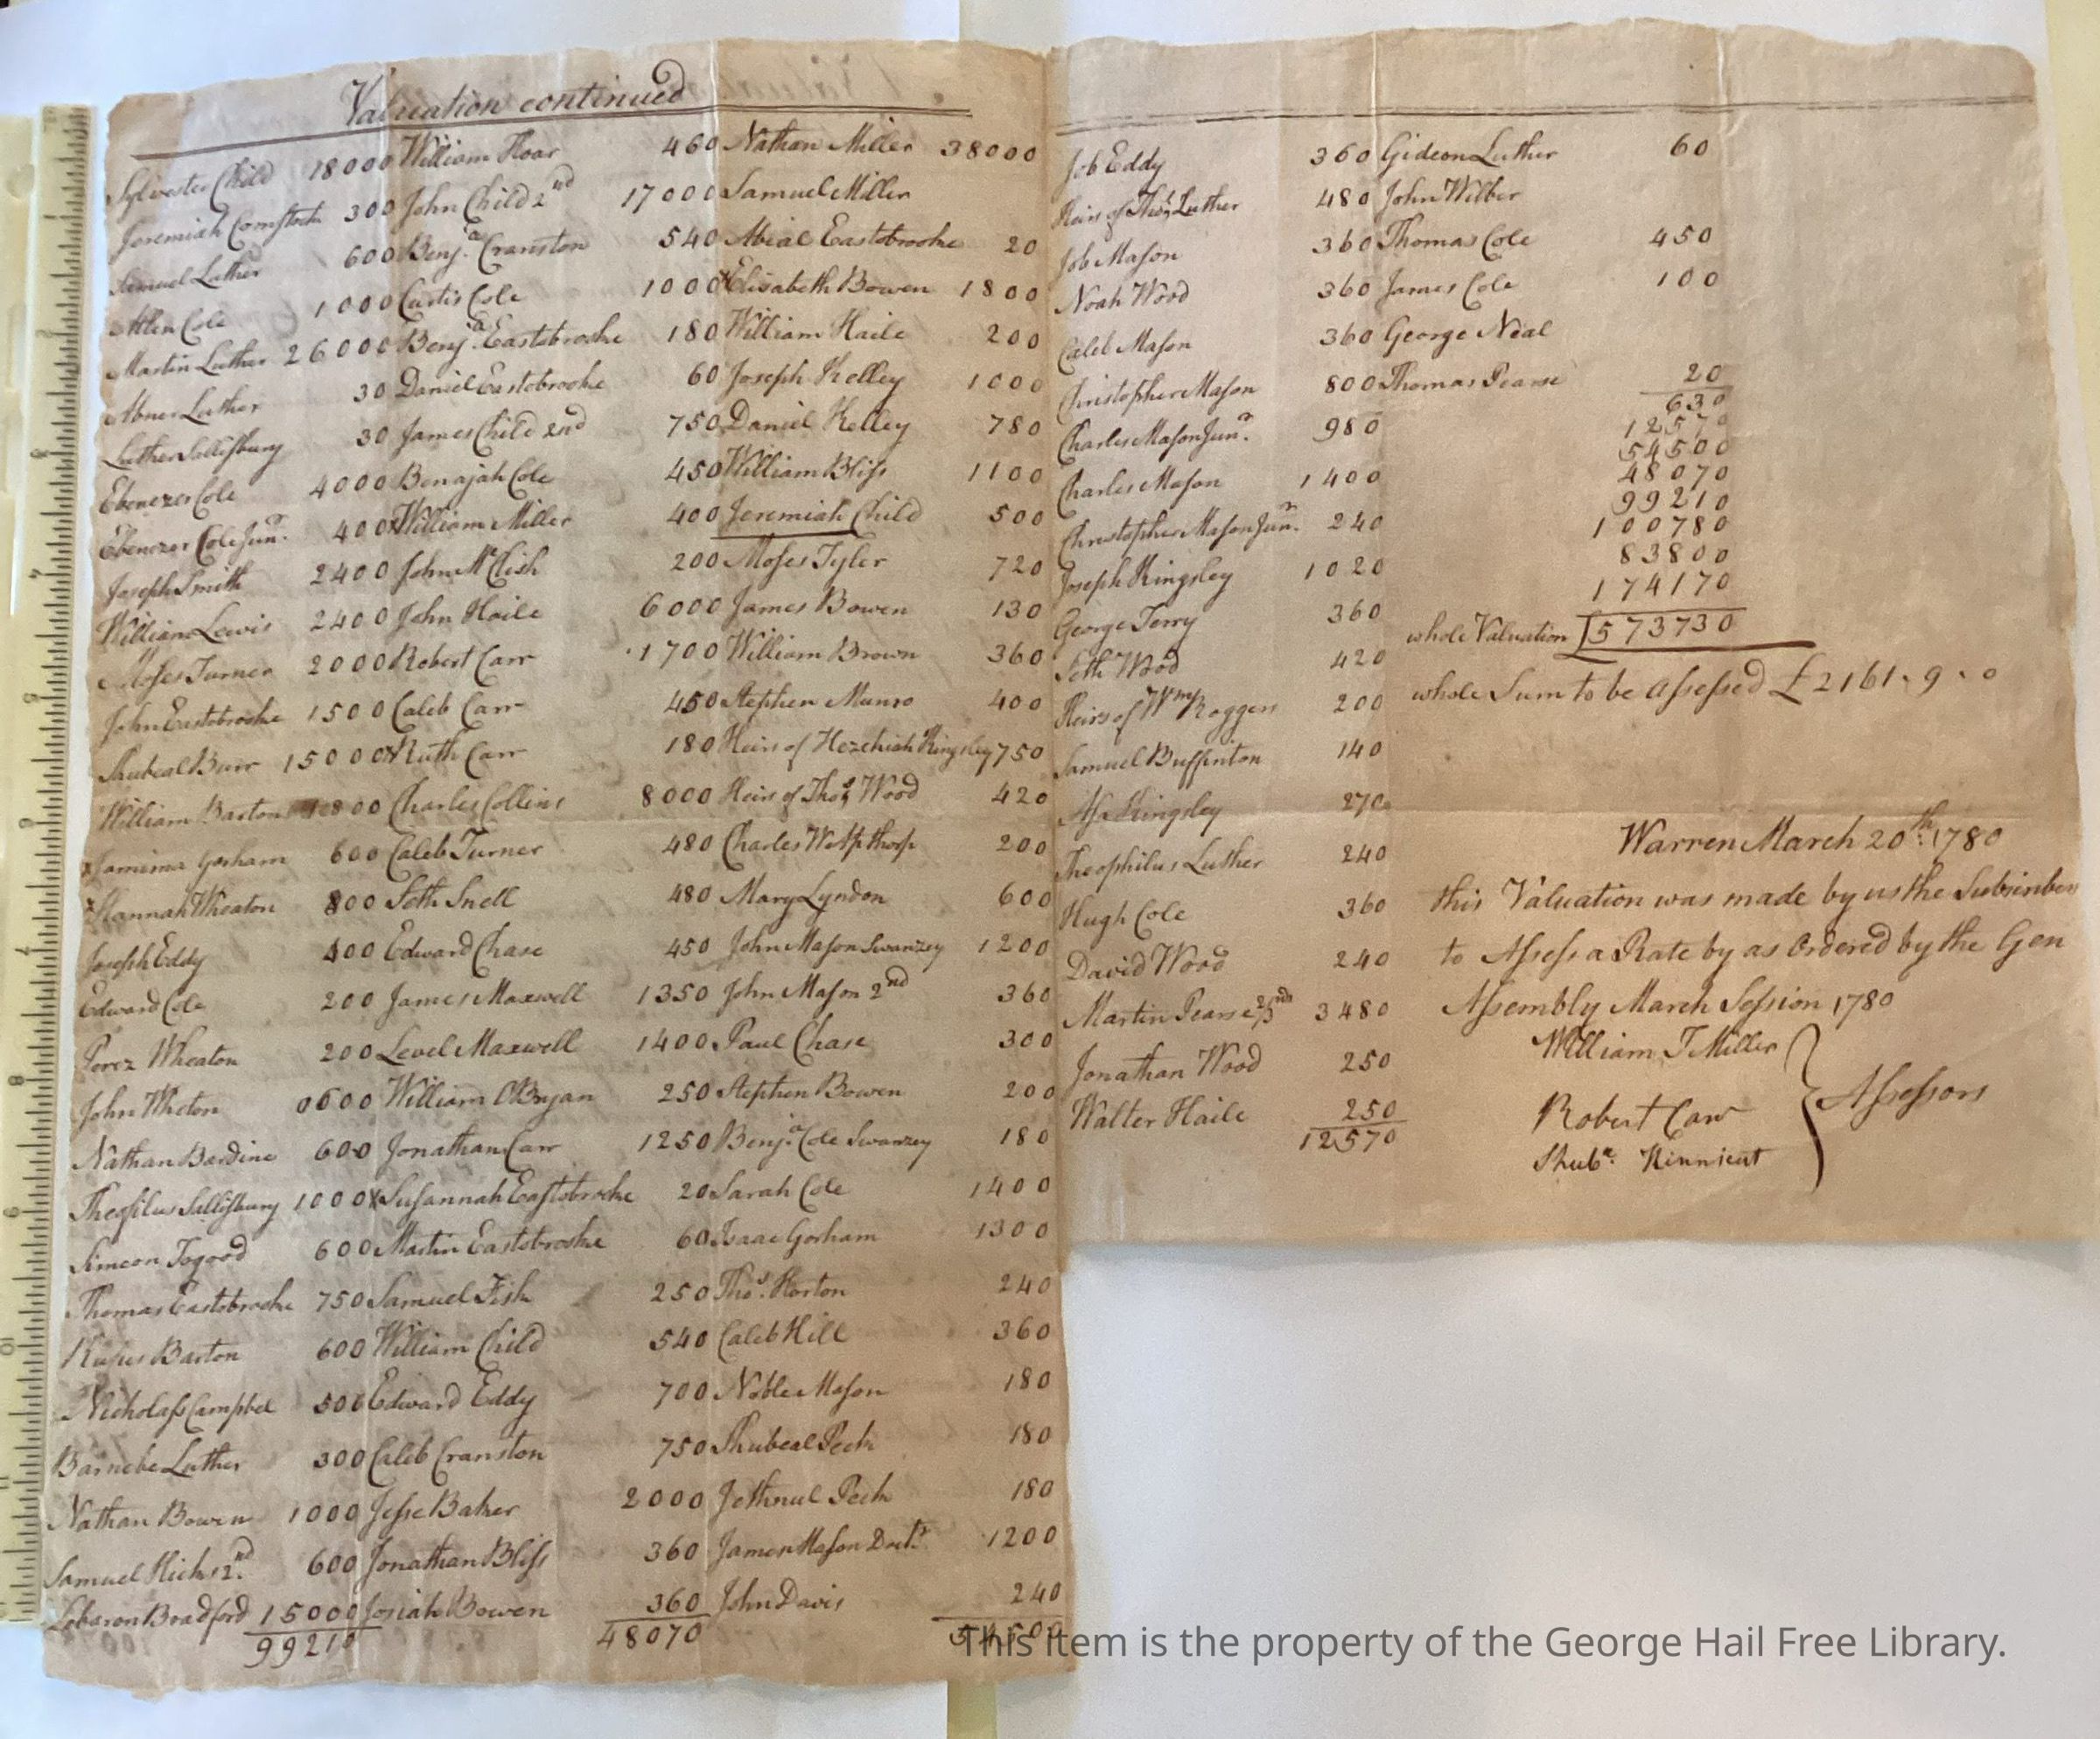 Valuation continued
Sylvester Child 18000
Jeremiah Comstock 300
Samuel Luther 600
Allen Cole 1000
Martin Luther 26000
Abner Luther 30
Luther Sallisbury 30
Ebenezer Cole 4000
Ebenezer Cole Junr. 400
Joseph Smith 2400
William Lewis 2400
Moses Turner 2000
John Eastobrooke 1500
Shubeal Burr 15000
William Barton 1800
x Jamima Gorham 600
x Hannah Wheaton 800
Joseph Eddy 400
Edward Cole 200
Perez Wheaton 200
John Wheton 0600
Nathan Bardine 600
Theofilus Sallisbury 1000
Simeon Togood 600
Thomas Eastobrooke 750
Rufus Barton 600
Nicholass Campbel 500
Barnebe Luther 300
Nathan Bowen 1000
Samuel Hicks 2nd 600
Lebaron Bradford 15000
99210
William Hoar 460
John Child 2nd 17000
Benja. Cranston 540
Curtis Cole 1000
Benja. Eastobrooke 180
Daniel Eastobrooke 60
James Child 2nd 750
Benajah Cole 450
x William Miller 400
John McClish 200
John Haile 6000
Robert Carr 1700
Caleb Carr 450
x Ruth Carr 180
Charles Collins 8000
Caleb Turner 480
Seth Snell 480
Edward Chase 450
James Maxwell 1350
Level Maxwell 1400
William OBryan 250
Jonathan Carr 1250
x Susannah Eastobrooke 20
Martin Eastobrooke 60
Samuel Fish 250
William Child 540
Edward Eddy 700
Caleb Cranston 750
Jesse Baker 2000
Jonathan Bliss 360
Josiah Bowen 360
48070
Nathan Miller 38000
Samuel Miller
Abial Eastobrooke 20
x Elisabeth Bowen 1800
William Haile 200
Joseph Kelley 1000
Daniel Kelley 780
William Bliss 1100
Jeremiah Child 500
Moses Tyler 720
James Bowen 130
William Brown 360
Stephen Munro 400
Heirs of Hezekiah Kingsley 750
Heirs of Thos. Wood 420
Charles 200
Mary Lyndon 600
John Mason Swanzey 1200
John Mason 2nd 360
Paul Chase 300
Stephen Bowen 200
Benja. Cole Swanzey 180
Sarah Cole 1400
Isaac Gorham 1300
Thos. Horton 240
Caleb Hill 360
Noble Mason 180
Shubeal Peck 180
Jethnul Peck 180
James Mason 1200
John Davis 240
54500
Job Eddy 360
Heirs of Thos. Luther 480
Job Mason 360
Noah Wood 360
Caleb Mason 360
Christopher Mason 800
Charles Mason Junr. 980
Charles Mason 1400
Christopher Mason Junr. 240
Joseph Kingsley 1020
George Terry 360
Seth Wood 420
Heirs of Wm Roggers 200
Samuel Buffinton 140
Asa Kingsley 270
Theophilus Luther 240
Hugh Cole 360
David Wood 240
Martin Pearse 3480
Jonathan Wood 250
Walter Haile 250
12570
Gideon Luther 60
John Wilber
Thomas Cole 450
James Cole 100
George Neal
Thomas Pearse 20
630
12570
54500
48070
99210
100780
83800
174170
whole Valuation 573730
whole Sum to be assessed £2161.9.0
Warren March 20th. 1780
this Valuation was made by us the Subscribers
to Assess a Rate by as Ordered by the Gen
Assembly March Session 1780
William T Miller
Robert Carr
Shubl. Kinnicut
Assessors
This item is the property of the George Hail Free Library.